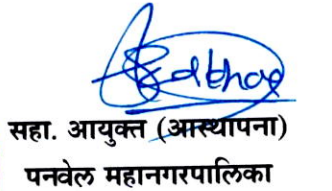 सहा. आयुक्त (आस्थापना)
पनवेल महानगरपालिका